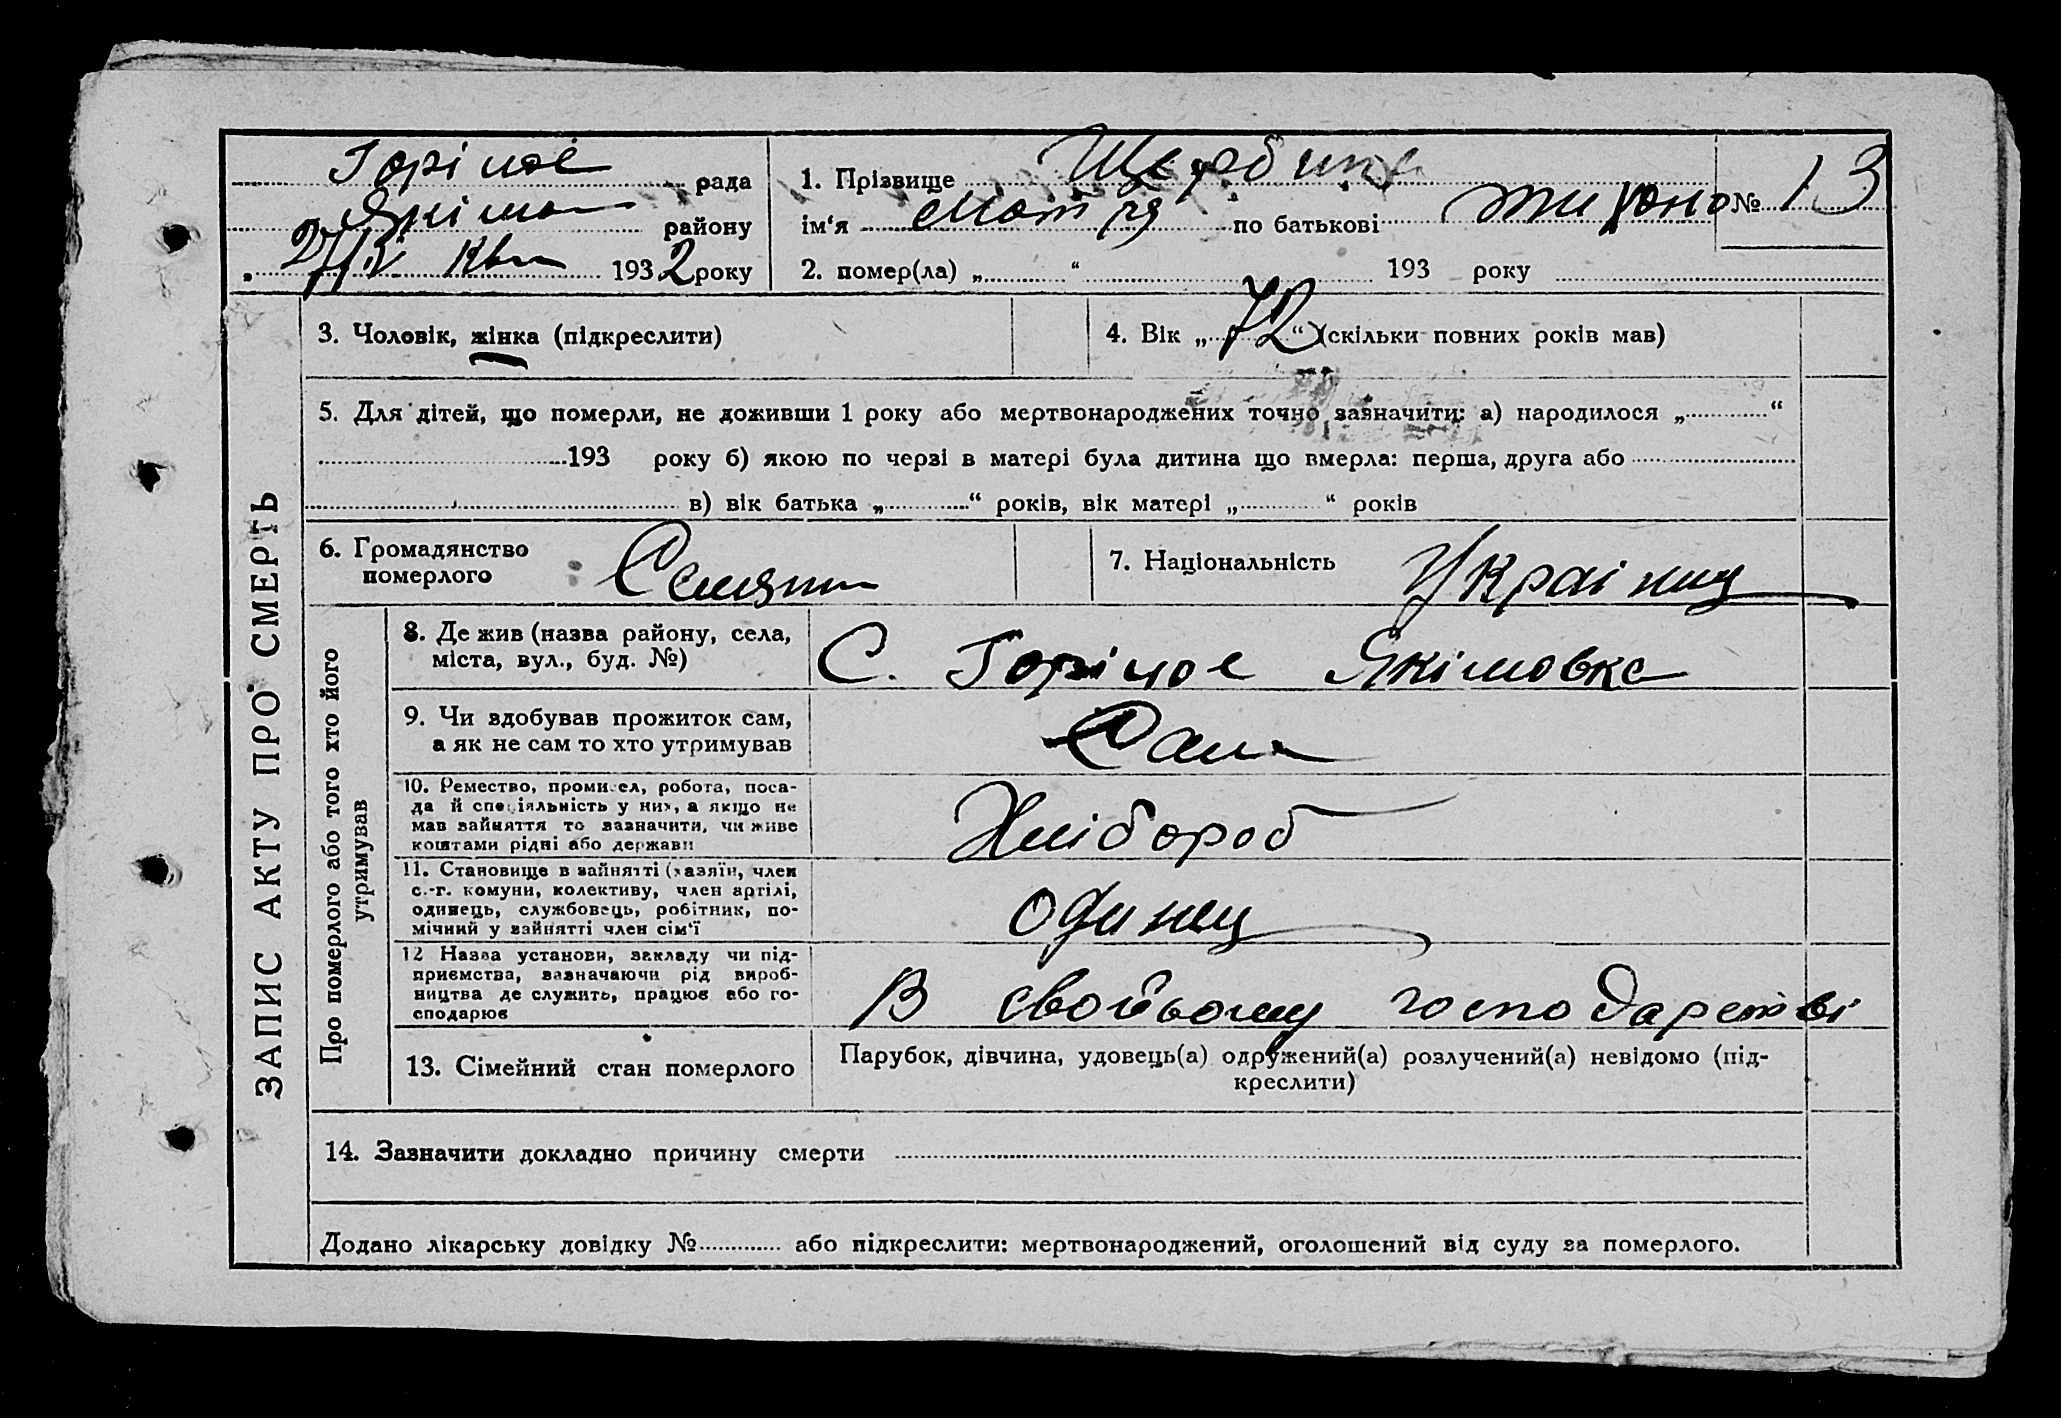 Горіное рада
Якімо району
„27/IV Квіт 1932 року
1. Прізвище Щербина
ім‘я Мотря по батькові Тихоно № 13
2. помер(ла) „ “ 193 року
3. Чоловік, жінка (підкреслити)
4. Вік „72“ (скільки повних років мав)
5. Для дітей, що померли, не доживши 1 року або мертвонароджених точно зазначити: а) народилося „ “
193 року б) якою по черзі в матері була дитина що вмерла: перша, друга або
в) вік батька „ “ років, вік матері „ “ років
6. Громадянство
померлого
7. Національність Україниц
ЗАПИС АКТУ ПРО СМЕРТЬ
Про померлого або того хто його
утримував
8. Де жив (назва району, села,
міста, вул., буд. №)
С. Горіное Якімовка
9. Чи здобував прожиток сам,
а як не сам то хто утримував
Сам
10. Ремество, промисел, робота, поса-
да й спеціяльність у них, а якщо не
мав зайняття то зазначити, чи живе
коштами рідні або держави
Хлібороб
11. Становище в зайнятті (хазяїн, член
с.-г. комуни, колективу, член артілі,
одинець, службовець, робітник, по-
мічний у зайнятті член сім‘ї
Одинец
12 Назва установи, закладу чи під-
приємства, зазначаючи рід вироб-
ництва де служить, працює або го-
сподарює
В свойьому господарстві
13. Сімейний стан померлого
Парубок, дівчина, удовець(а) одружений(а) розлучений(а) невідомо (під-
креслити)
14. Зазначити докладно причину смерти
Додано лікарську довідку № або підкреслити: мертвонароджений, оголошений від суду за померлого.